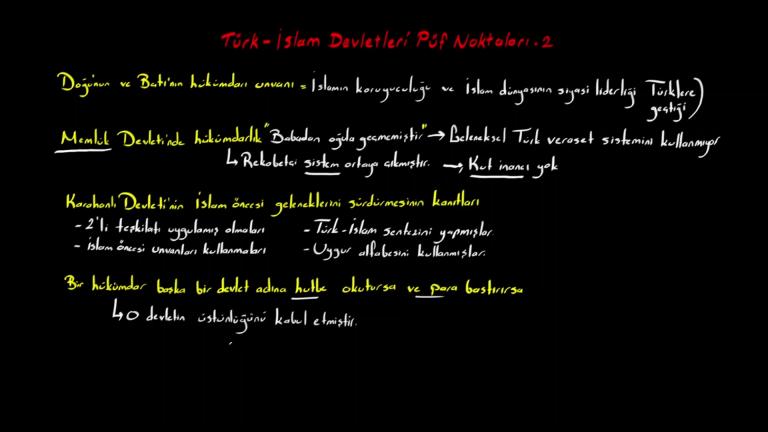 Türk-İslam Devletleri Püf Noktaları.2
Doğu'nun ve Batı'nın hükümdarı unvanı = İslamın koruyuculuğu ve İslam dünyasının siyasi liderliği Türklere geçtiği)
Memlük Devleti'nde hükümdarlık "Babadan oğula geçmemiştir" → Geleneksel Türk veraset sistemini kullanmıyor
↳ Rekabetçi sistem ortaya çıkmıştır. → Kut inancı yok
Karahanlı Devleti'nin İslam öncesi geleneklerini sürdürmesinin kanıtları
- 2'li teşkilatı uygulamış olmaları - Türk-İslam sentezini yapmışlar.
- İslam öncesi unvanları kullanmaları - Uygur alfabesini kullanmışlar.
Bir hükümdar başka bir devlet adına hutbe okutursa ve para bastırırsa
↳ O devletin üstünlüğünü kabul etmiştir.